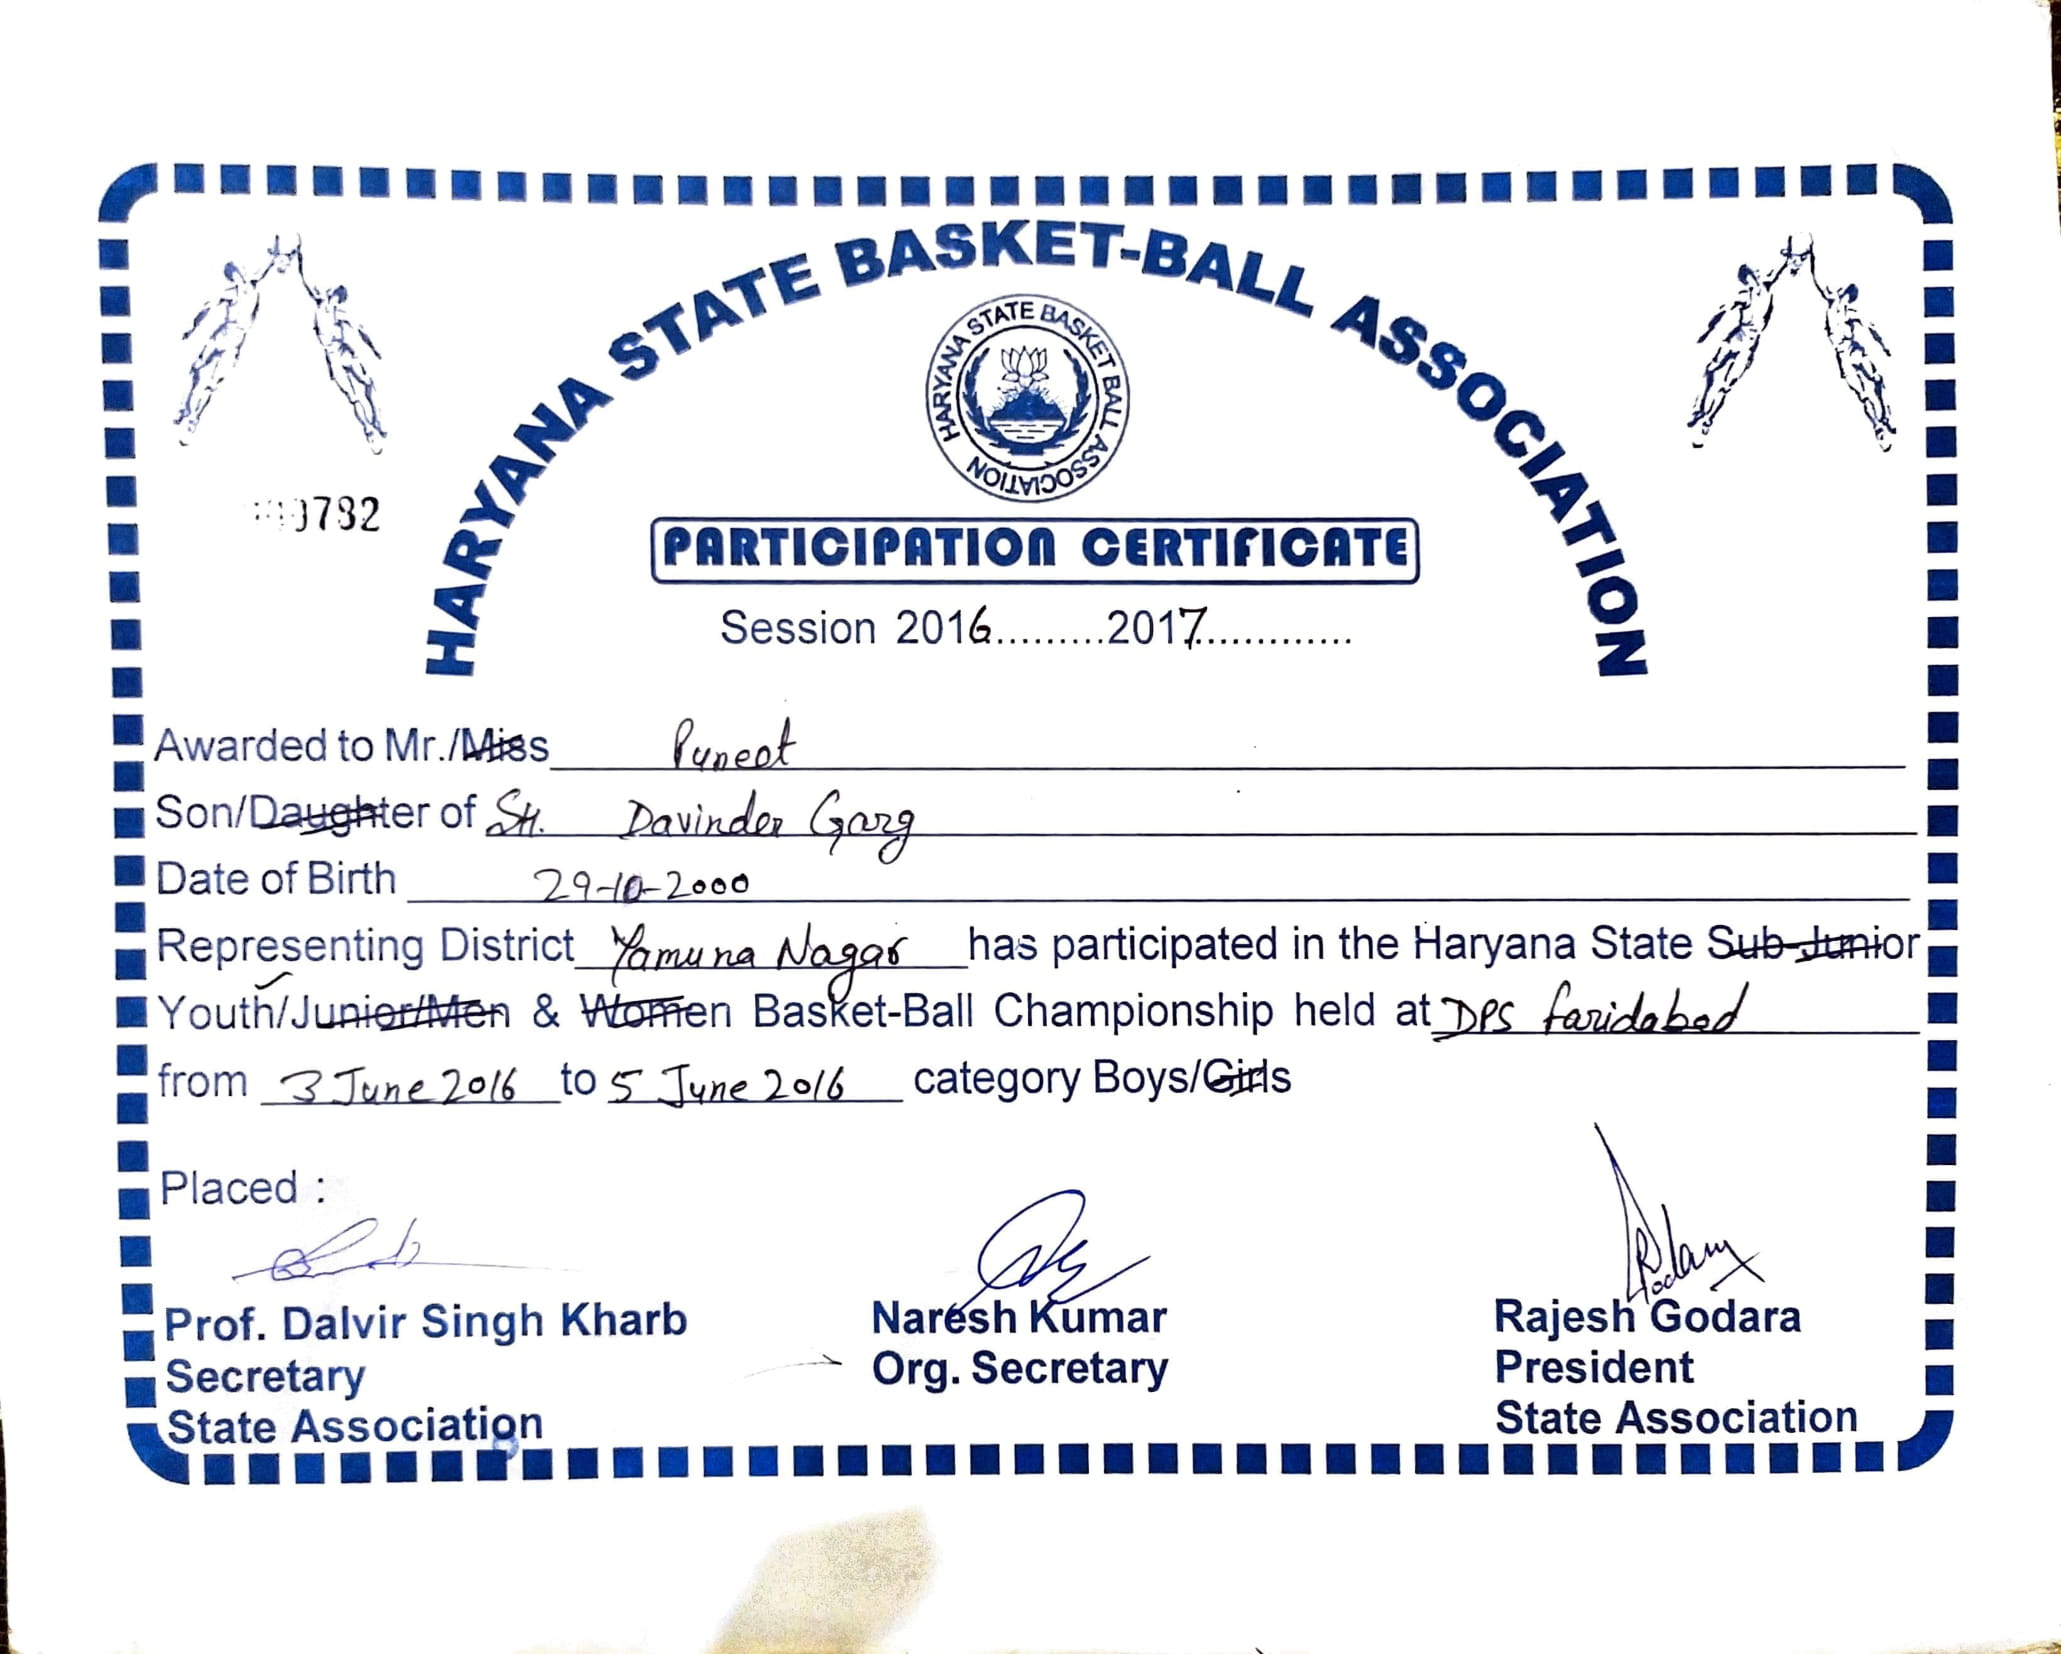 HARYANA STATE BASKET-BALL ASSOCIATION
HARYANA STATE BASKET BALL ASSOCIATION
PARTICIPATION CERTIFICATE
Session 2016.........2017.............
Awarded to Mr./Miss Puneet
Son/Daughter of Sh. Davinder Garg
Date of Birth 29-10-2000
Representing District Yamuna Nagar has participated in the Haryana State Sub-Junior
Youth/Junior/Men & Women Basket-Ball Championship held at DPS Faridabad
from 3 June 2016 to 5 June 2016 category Boys/Girls
Placed :
Prof. Dalvir Singh Kharb
Secretary
State Association
Naresh Kumar
Org. Secretary
Rajesh Godara
President
State Association